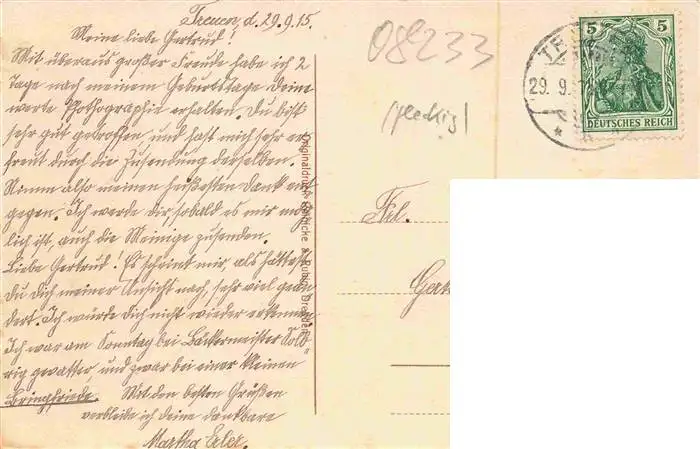 Treuen, d. 29.9.15.
Meine liebe Gertrud!
Mit überaus großer Freude habe ich 2
Tage nach meinem Geburtstage Deine
werte Photographie erhalten. Du bist
sehr gut getroffen, und hast mich sehr er
freut durch die Zusendung derselben.
Nimm also meinen heißesten Dank ent
gegen. Ich werde dir, sobald es mir mög
lich ist, auch die Meinige zusenden.
Liebe Gertrud! Es scheint mir, als hättest
Du Dich meiner Ansicht nach, sehr viel geän
dert. Ich würde Dich nicht wieder erkennen.
Ich war am Sonntag bei Bäckermeister
gevatter, und zwar bei einer kleinen
Mit den besten Grüßen
verbleibe ich deine dankbare
Martha
Originaldruck
08233
fleckig
29. 9.
5 5
DEUTSCHES REICH
Frl.